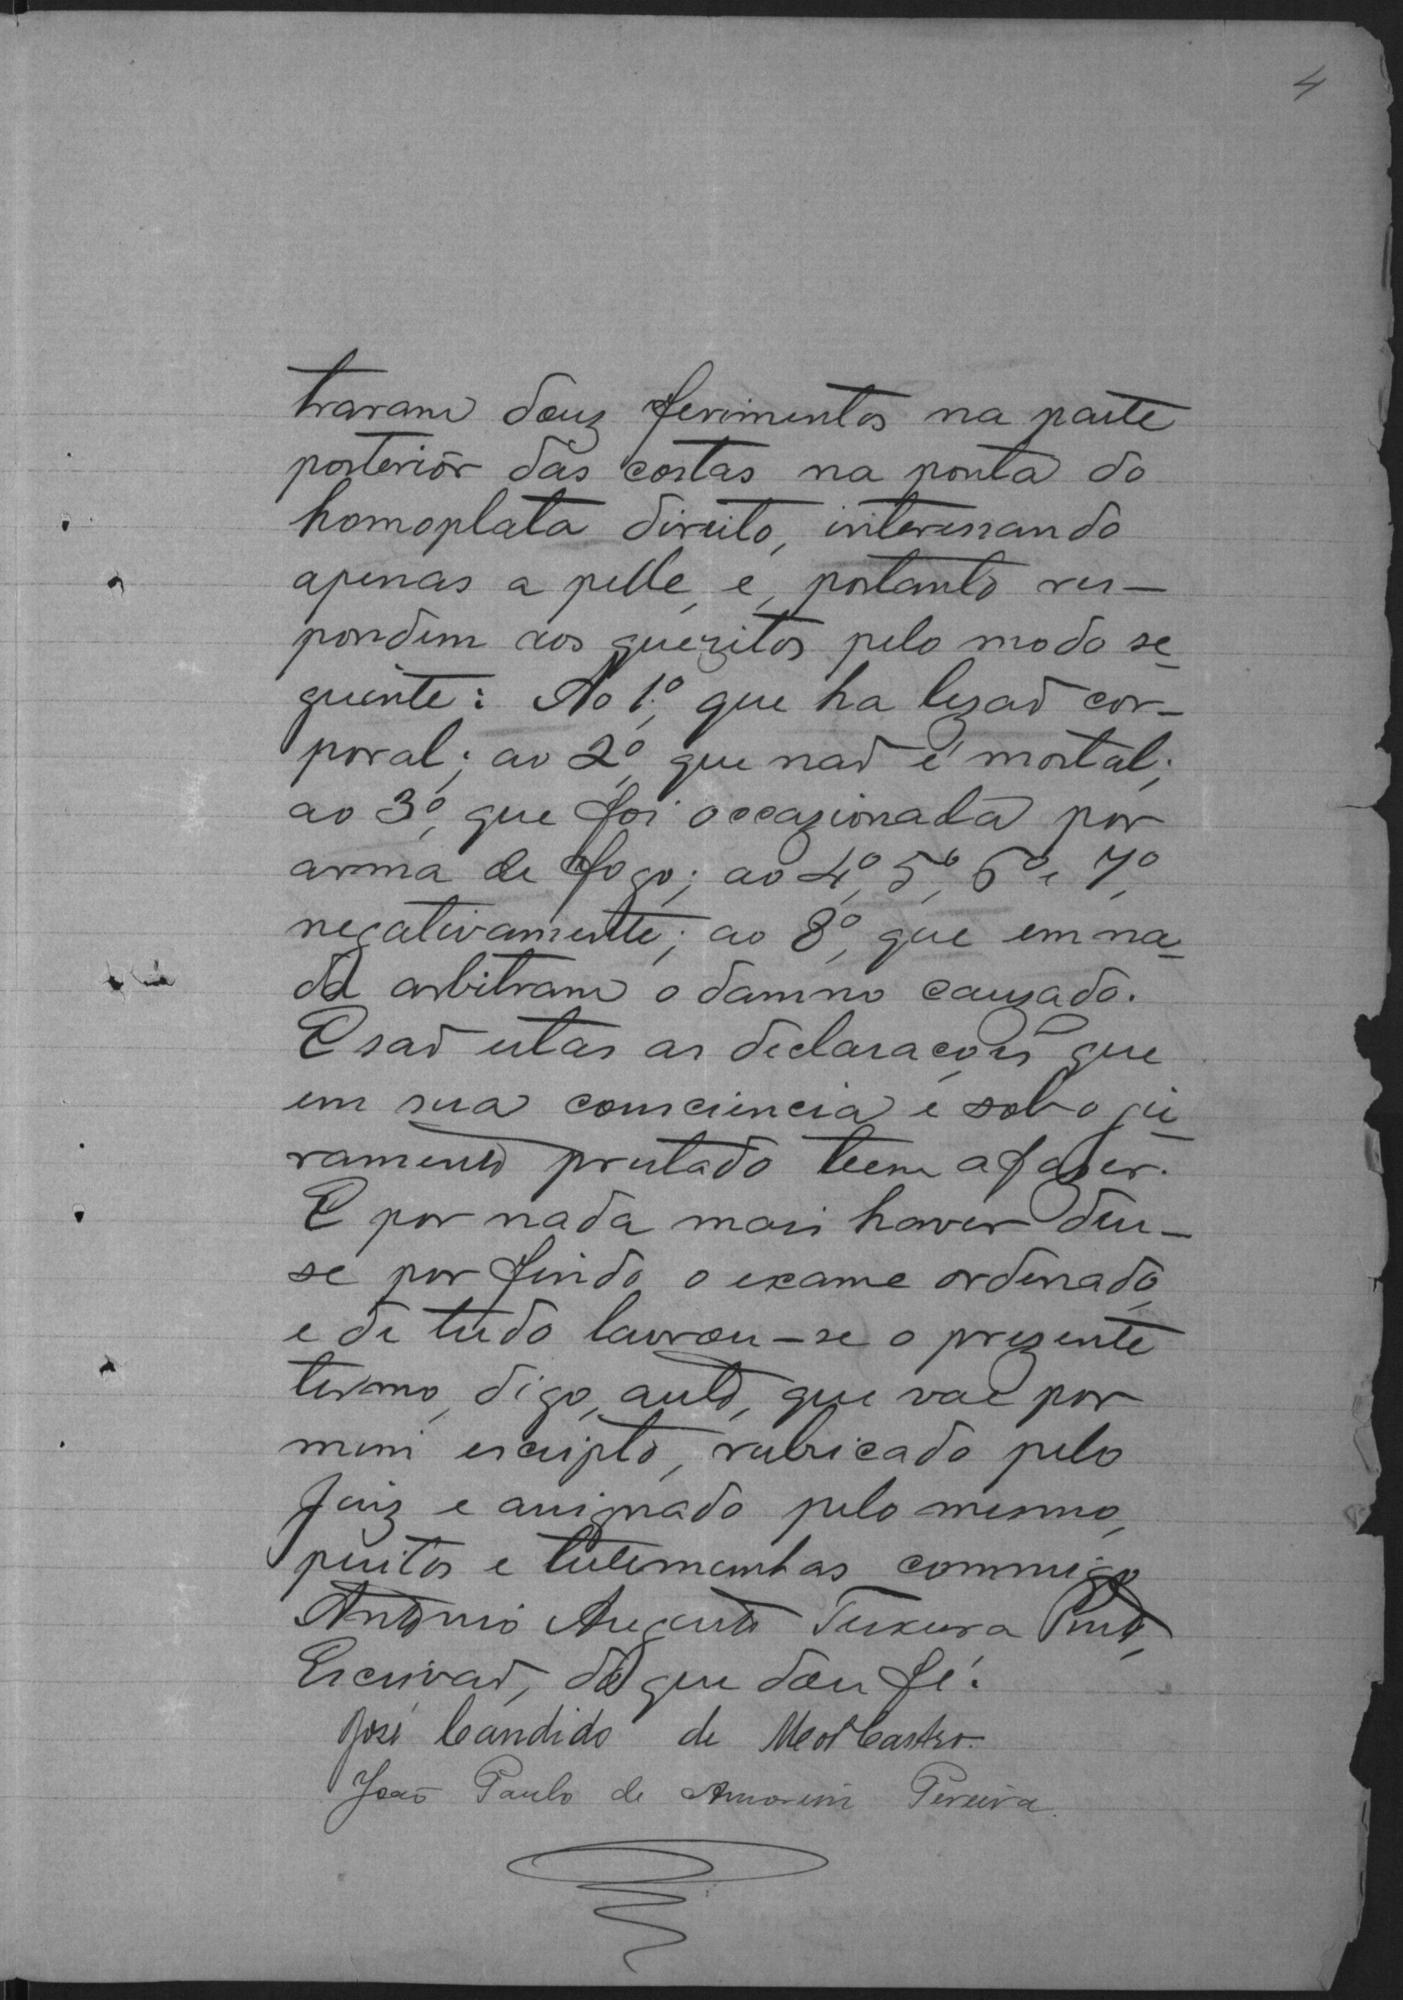 4
traram douz ferimentos na parte
posterior das costas na ponta do
homoplata direito, interessando
apenas a pelle, e, portanto res-
pondem aos quezitos pelo modo se-
guinte: Ao 1º, que ha lezaõ cor-
poral; ao 2º, que naõ é mortal;
ao 3º, que foi occazionada por
arma de fogo; ao 4º, 5º, 6º e 7º,
negativamente; ao 8º, que em na-
da arbitram o damno cauzado.
E saõ estas as declarações que
em sua consciencia e sob o ju-
ramento prestado teem a fazer.
E por nada mais haver deu-
se por findo o exame ordenado,
e de tudo lavrou-se o prezente
termo, digo, auto, que vae por
mim escripto, rubricado pelo
Juiz e assignado pelo mesmo,
peritos e testemunhas commigo
Antonio Augusto Teixeira Pinto,
Escrivaõ, do que dou fé.
José Candido de Castro.
João Paulo de Amorim Pereira.